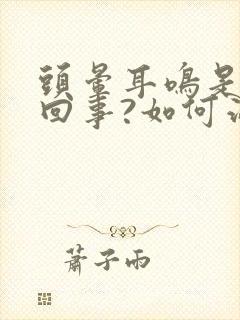 頭暈耳鳴是
回事?如何
蕭子雨